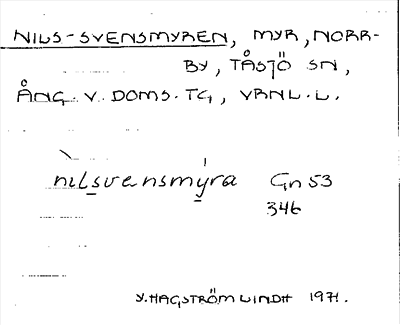 NILS-SVENSMYREN, MYR, NORR-
BY, TÅSJÖ SN,
ÅNG. V. DOMS. TG, VRNL. L.
nilsvensmyra Gn 53
346
Y. HAGSTRÖM LINDH 1971.